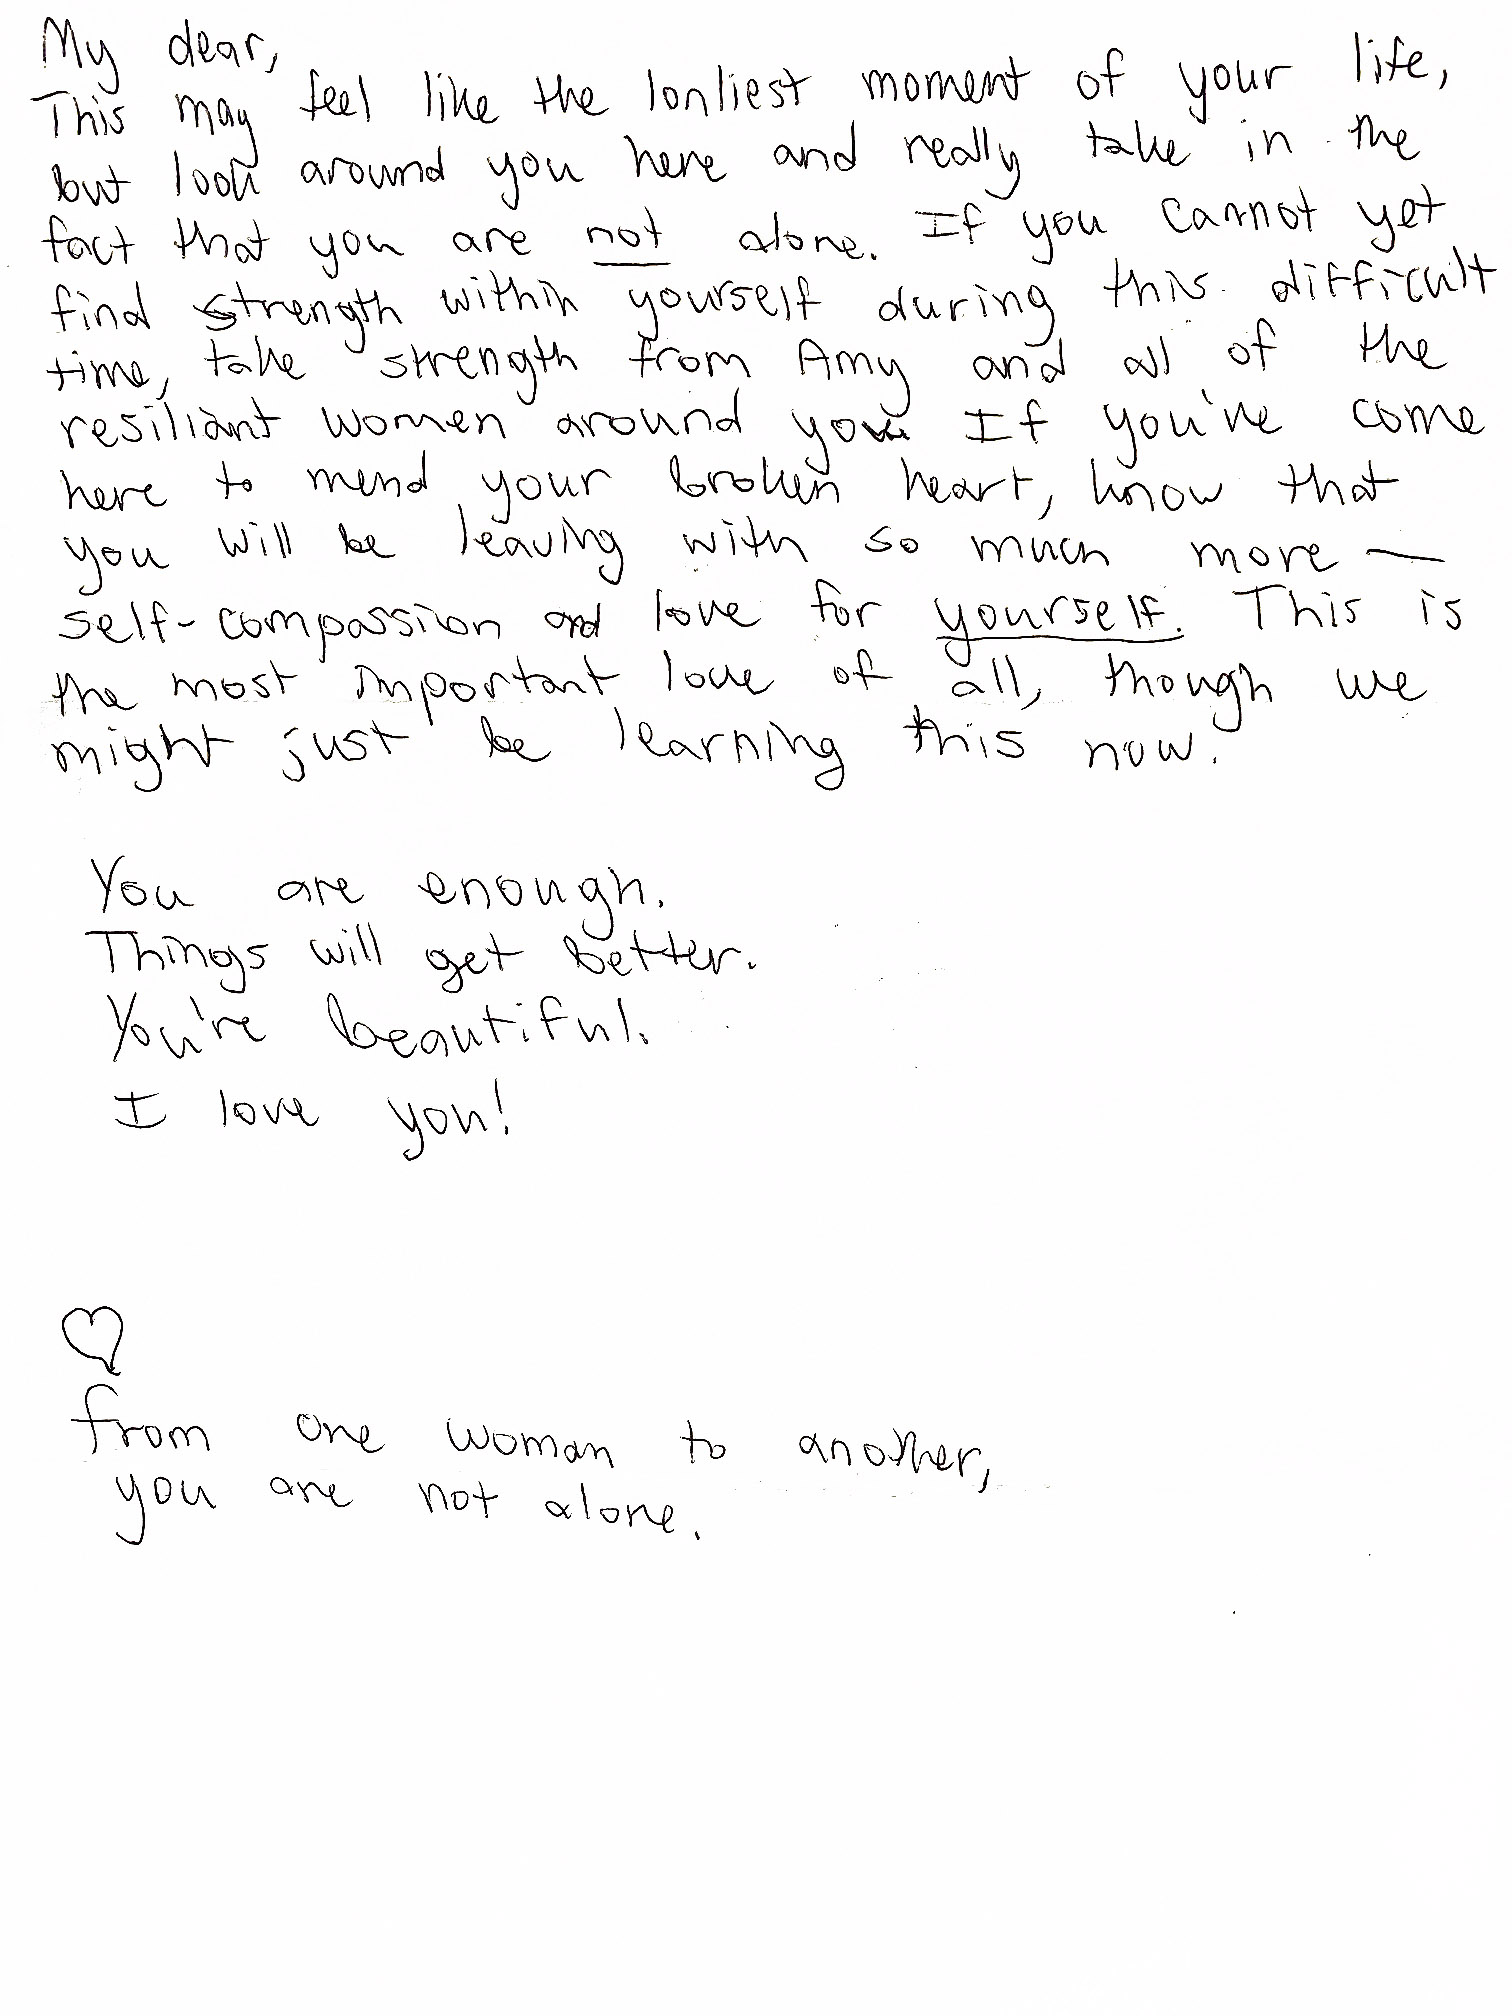 My dear,
This may feel like the lonliest moment of your life,
but look around you here and really take in the
fact that you are not alone. If you cannot yet
find strength within yourself during this difficult
time, take strength from Amy and all of the
resiliant women around you. If you've come
here to mend your broken heart, know that
you will be leaving with so much more —
self-compassion and love for yourself. This is
the most important love of all, though we
might just be learning this now.
You are enough.
Things will get better.
You're beautiful.
I love you!
from one woman to another,
you are not alone.